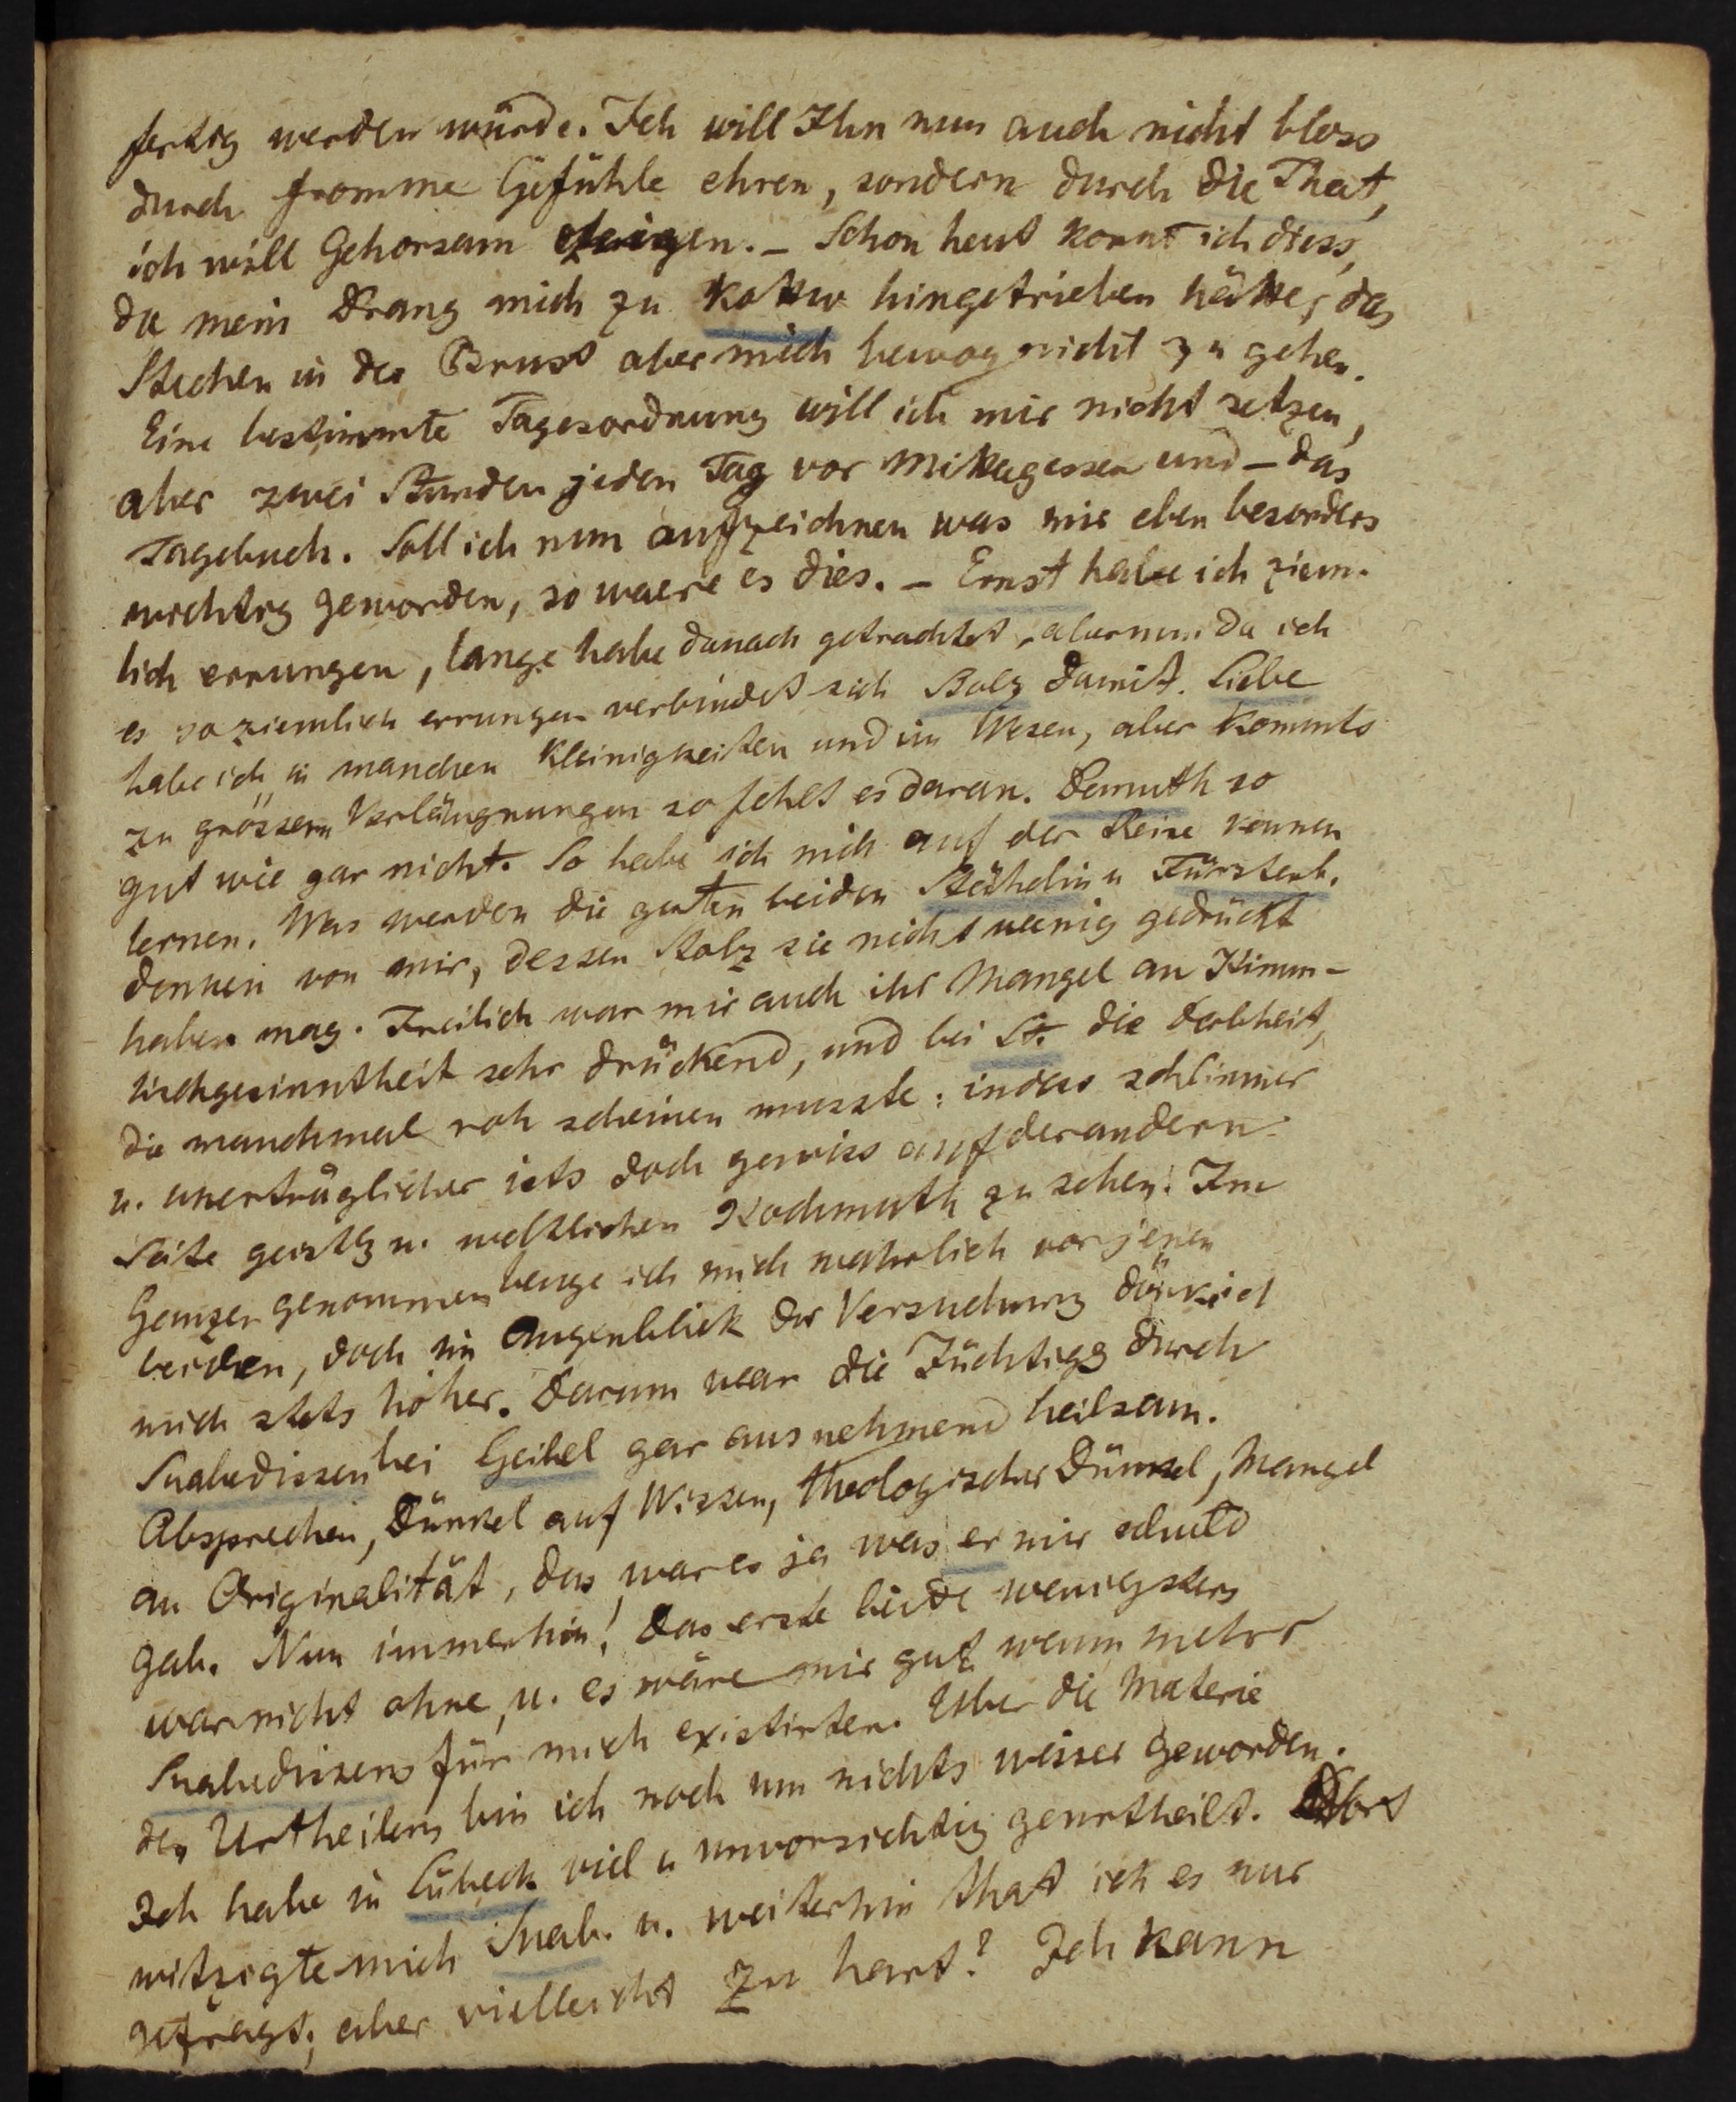 fertig werden würde. Ich will Ihn nun auch nicht bloss
durch fromme Gefühle ehren, sondern durch die That,
ich will Gehorsam zeigen. – Schon heut konnt ich diess,
da mein Drang mich zu hingetrieben hätte, das
Stechen in der Brust aber mich bewog nicht zu gehen.
Eine bestimmte Tagesordnung will ich mir nicht setzen,
aber zwei Stunden jeden Tag vor Mittagessen und – das
Tagebuch. Soll ich nun aufzeichnen was mir eben besonders
wichtig geworden, so waere es dies. – Ernst habe ich ziem-
lich errungen, lange habe danach getrachtet, aber nun da ich
es so ziemlich errungen verbindet sich Stolz damit. Liebe
habe ich in manchen Kleinigkeiten und im Wesen, aber kommts
zu grössern Verläugnungen so fehlt es daran. Demuth so
gut wie gar nicht. So habe ich mich auf der Reise kennen
lernen. Was werden die guten beiden Stähelin u Fürstenb.
denken von mir, dessen Stolz sie nicht wenig gedrückt
haben mag. Freilich war mir auch ihr Mangel an Himm-
lischgesinntheit sehr drückend, und bei St. die Derbheit,
die manchmal roh scheinen musste: indess schlimmer
u. unerträglicher ists doch gewiss auf der andern
Seite geistlg u. weltlichen Hochmuth zu sehen. Im
Ganzen genommen beuge ich mich wahrlich vor jenen
beiden, doch im Augenblick der Versuchung dünkt
mich stets höher. Darum war die Züchtigg durch
Suabedissen bei Geibel gar ausnehmend heilsam.
Absprechen, Dünkel auf Wissen, theologischer Dünkel, Mangel
an Originalität, das war es ja was er mir schuld
gab. Nun immerhin! Das erste beide wenigstens
war nicht ohne, u. es wäre mir gut wenn mehr
Suabedissens für mich existirten. Über die Materie
des Urtheilens bin ich noch um nichts weiser geworden.
Ich habe in Lübeck viel u unvorsichtig geurtheilt. Dort
witzigte mich Suab. u. weiterhin that ich es nur
gefragt, aber vielleicht zu hart? Ich kann